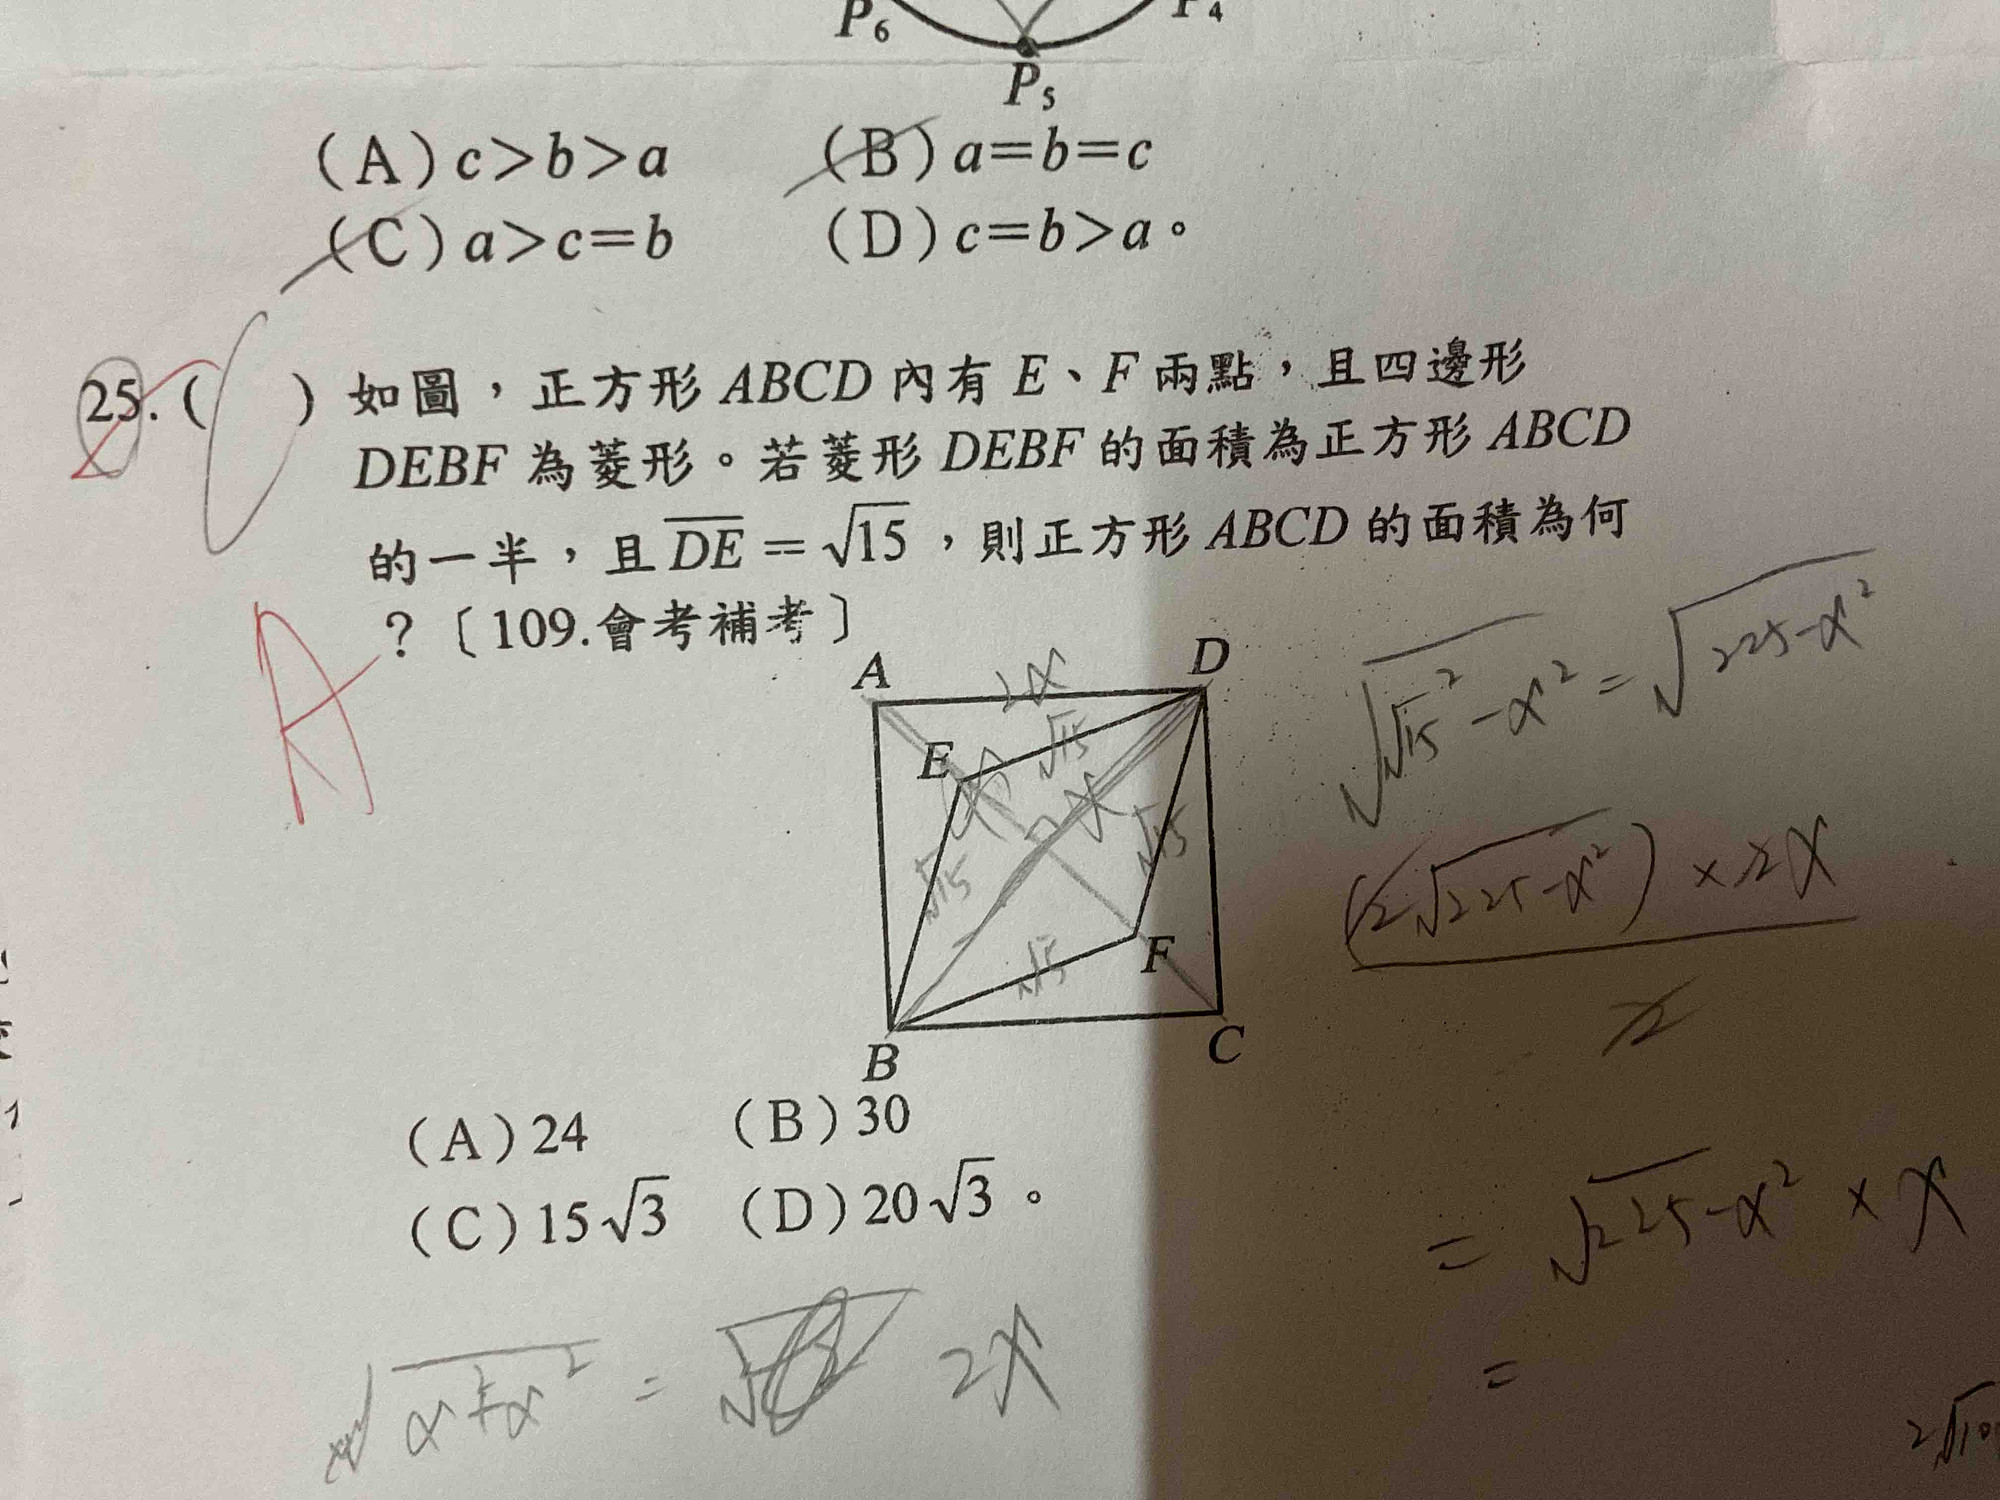 P₆
P₄
P₅
(A) c>b>a (B) a=b=c
(C) a>c=b (D) c=b>a。
25. ( ) 如圖，正方形 ABCD 內有 E、F 兩點，且四邊形
DEBF 為菱形。若菱形 DEBF 的面積為正方形 ABCD
的一半，且 DE = √15，則正方形 ABCD 的面積為何
？〔109.會考補考〕
A
A 2x D
E √15
x 2x √15
√15
√15 F
B C
√(√15² - x²) = √(225-x²)
(2√(225-x²)) × 2x
2
= √(225-x²) × x
=
(A) 24 (B) 30
(C) 15√3 (D) 20√3。
√(x²+x²) = 2x